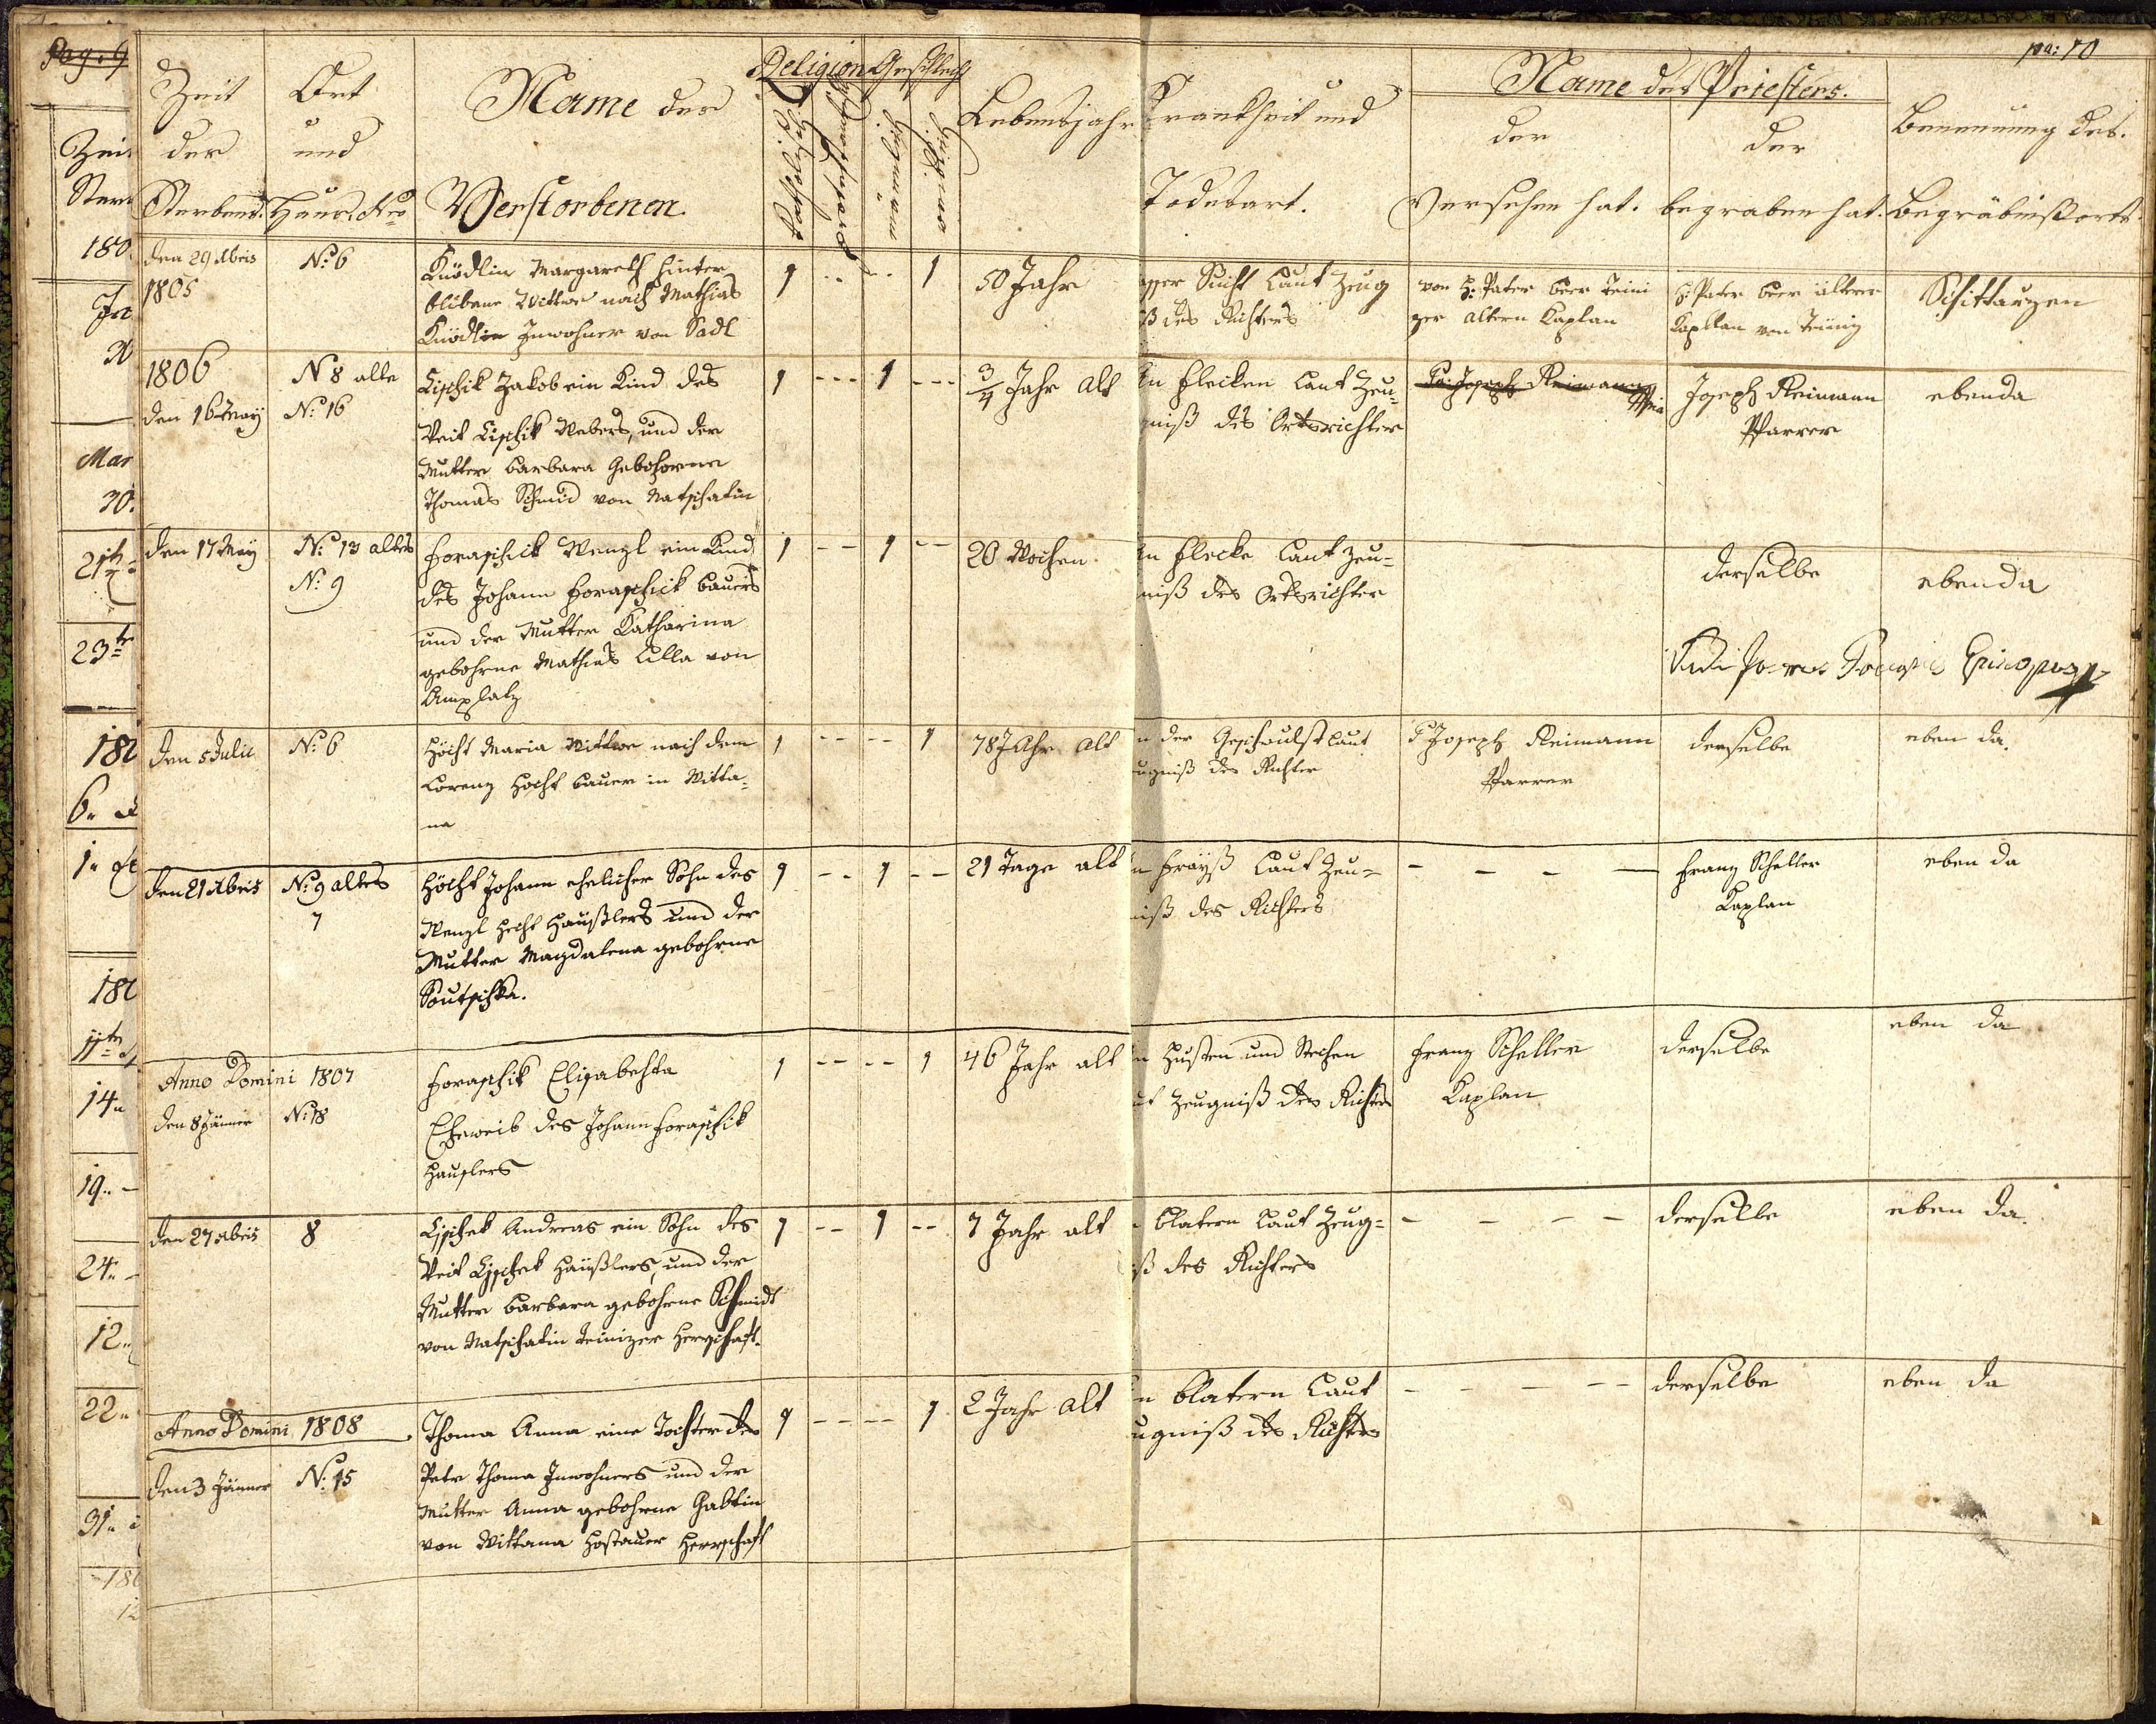 Pag: 9
pa: 10
Zeit der Sterbens.
Ort und Haus. Nro
Name der Verstorbenen.
Religion
Geschlecht
Lebensjahr
Krankheit und Todesart.
Name des Priesters.
der Versehen hat.
der begraben hat.
Benennung des Begräbnißorts.
den 29 Xbris 1805
No: 6
Knödlin Margareth hinter
blibene Wittwe nach Mathias
Knödlin Inwohner von Sadl
1 -- -- 1
50 Jahr
Sucht Laut Zeug
ß des Richters
von H: Pater Beer Teini
zer altern Kaplan
H: Pater Beer älterer
Kapllan von Teinig
Schittarzen
1806
den 16 May
N 8 alte
No: 16
Lischik Jakob ein Kind des
Veit Lischik Webers, und der
Mutter Barbara Gebohrne
Thomas Schmid von Natschatin
1 --- 1 ---
3/4 Jahr alt
In Flecken Laut Zeu-
niß des Ortsrichter
Pa: Joseph Reimann
Joseph Reimann
Pfarrer
ebenda
den 17 May
No: 13 altes
No: 9
Horaschick Wenzl ein Kind
des Johann Horaschick Bauers
und der Mutter Katharina
gebohrne Mathias Lilla von
Amplatz
1 -- 1 --
20 Wochen
In Flecke Laut Zeu-
niß des Ortsrichter
derselbe
ebenda
Episcopus
den 5 Julii
No: 6
Höcht Maria Wittwe nach dem
Lorenz Höcht Bauer in Witta-
na
1 -- -- 1
78 Jahr alt
n der Geschwulst Laut
ugniß des Richter
P Joseph Reimann
Pfarrer
derselbe
eben da.
den 21 Xbris
No: 9 altes
7
Höcht Johann ehelicher Sohn des
Wenzl Hecht Haußlers und der
Mutter Magdalena gebohrne
Koutschka.
1 -- 1 --
21 Tage alt
n Fräyß Laut Zeu-
niß des Richters
- - - -
Franz Scheller
Kaplan
eben da
Anno Domini 1807
den 8 Jänner
No: 18
Horaschik Elisabehta
Eheweib des Johann Horaschik
Hauslers
1 -- -- 1
46 Jahr alt
n Husten und Stechen
ut Zeugniß des Richters
Franz Scheller
Kaplan
derselbe
eben da
den 27 Xbris
8
Lischek Andreas ein Sohn des
Veit Lischek Häußlers, und der
Mutter Barbara gebohrne Schmidt
von Natschatin Teinizer Herrschaft.
1 -- 1 --
7 Jahr alt
Blatern Laut Zeug-
iß des Richters
- - - -
derselbe
eben da.
Anno Domini 1808
den 3 Jänner
No: 15
Thoma Anna eine Tochter des
Peter Thoma Inwohners und der
Mutter Anna gebohrne Gablin
von Wittana Hostauer Herrschaft
1 -- -- 1
2 Jahr alt
n Blatern Laut
ugniß des Richters
- - - --
derselbe
eben da